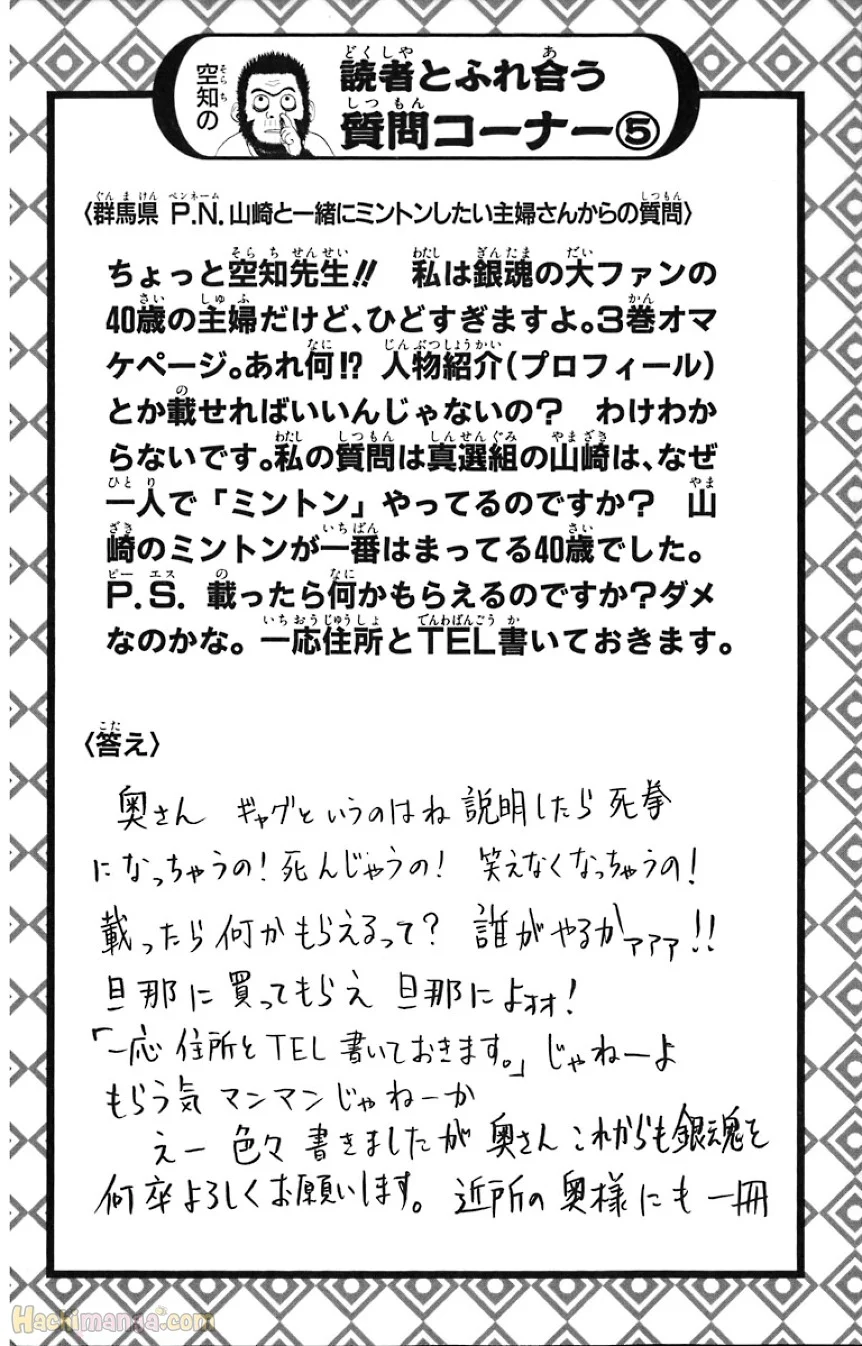 空知の
読者とふれ合う
質問コーナー⑤
〈群馬県 P.N.山崎と一緒にミントンしたい主婦さんからの質問〉
ちょっと空知先生!! 私は銀魂の大ファンの
40歳の主婦だけど、ひどすぎますよ。3巻オマ
ケページ。あれ何!? 人物紹介(プロフィール)
とか載せればいいんじゃないの? わけわか
らないです。私の質問は真選組の山崎は、なぜ
一人で「ミントン」やってるのですか? 山
崎のミントンが一番はまってる40歳でした。
P.S. 載ったら何かもらえるのですか?ダメ
なのかな。一応住所とTEL書いておきます。
〈答え〉
奥さん ギャグというのはね 説明したら死拳
になっちゃうの!死んじゃうの! 笑えなくなっちゃうの!
載ったら何かもらえるって? 誰がやるかァァァ!!
旦那に買ってもらえ 旦那によォォ!
「一応 住所とTEL 書いておきます。」じゃねーよ
もらう気マンマンじゃねーか
えー色々書きましたが奥さんこれからも銀魂を
何卒よろしくお願いします。近所の奥様にも一冊
Hachimanga.com